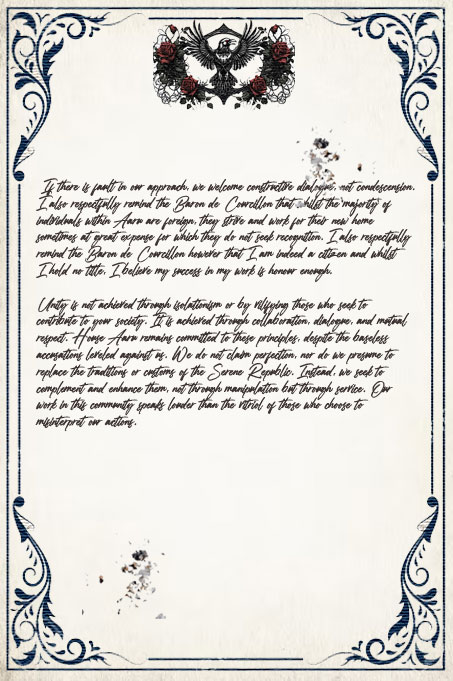 If there is fault in our approach, we welcome constructive dialogue, not condescension.
I also respectfully remind the Baron de Courcillon that whilst the majority of
individuals within Aaru are foreign, they strive and work for their new home
sometimes at great expense for which they do not seek recognition. I also respectfully
remind the Baron de Courcillon however that I am indeed a citizen and whilst
I hold no title, I believe my success in my work is honour enough.
Unity is not achieved through isolationism or by vilifying those who seek to
contribute to your society. It is achieved through collaboration, dialogue, and mutual
respect. House Aaru remains committed to these principles, despite the baseless
accusations leveled against us. We do not claim perfection, nor do we presume to
replace the traditions or customs of the Serene Republic. Instead, we seek to
complement and enhance them, not through manipulation but through service. Our
work in this community speaks louder than the vitriol of those who choose to
misinterpret our actions.